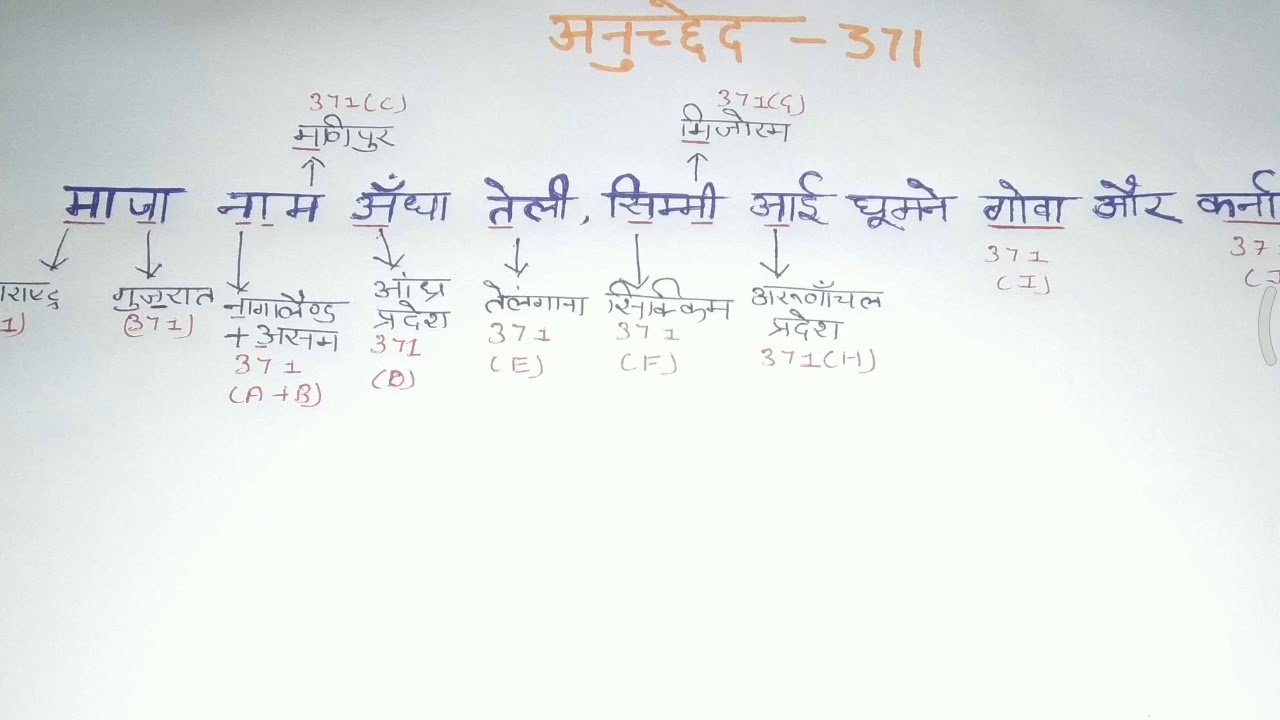 अनुच्छेद - 371
371(C) 371(G)
मणिपुर मिजोरम
माजा नाम अँधा तेली, सिम्मी आई घूमने गोवा और कर्ना
371 (I)
गुजरात (371)
नागालैण्ड + असम 371 (A+B)
आंध्र प्रदेश 371 (D)
तेलंगाना 371 (E)
सिक्किम 371 (F)
अरूणाँचल प्रदेश 371(H)